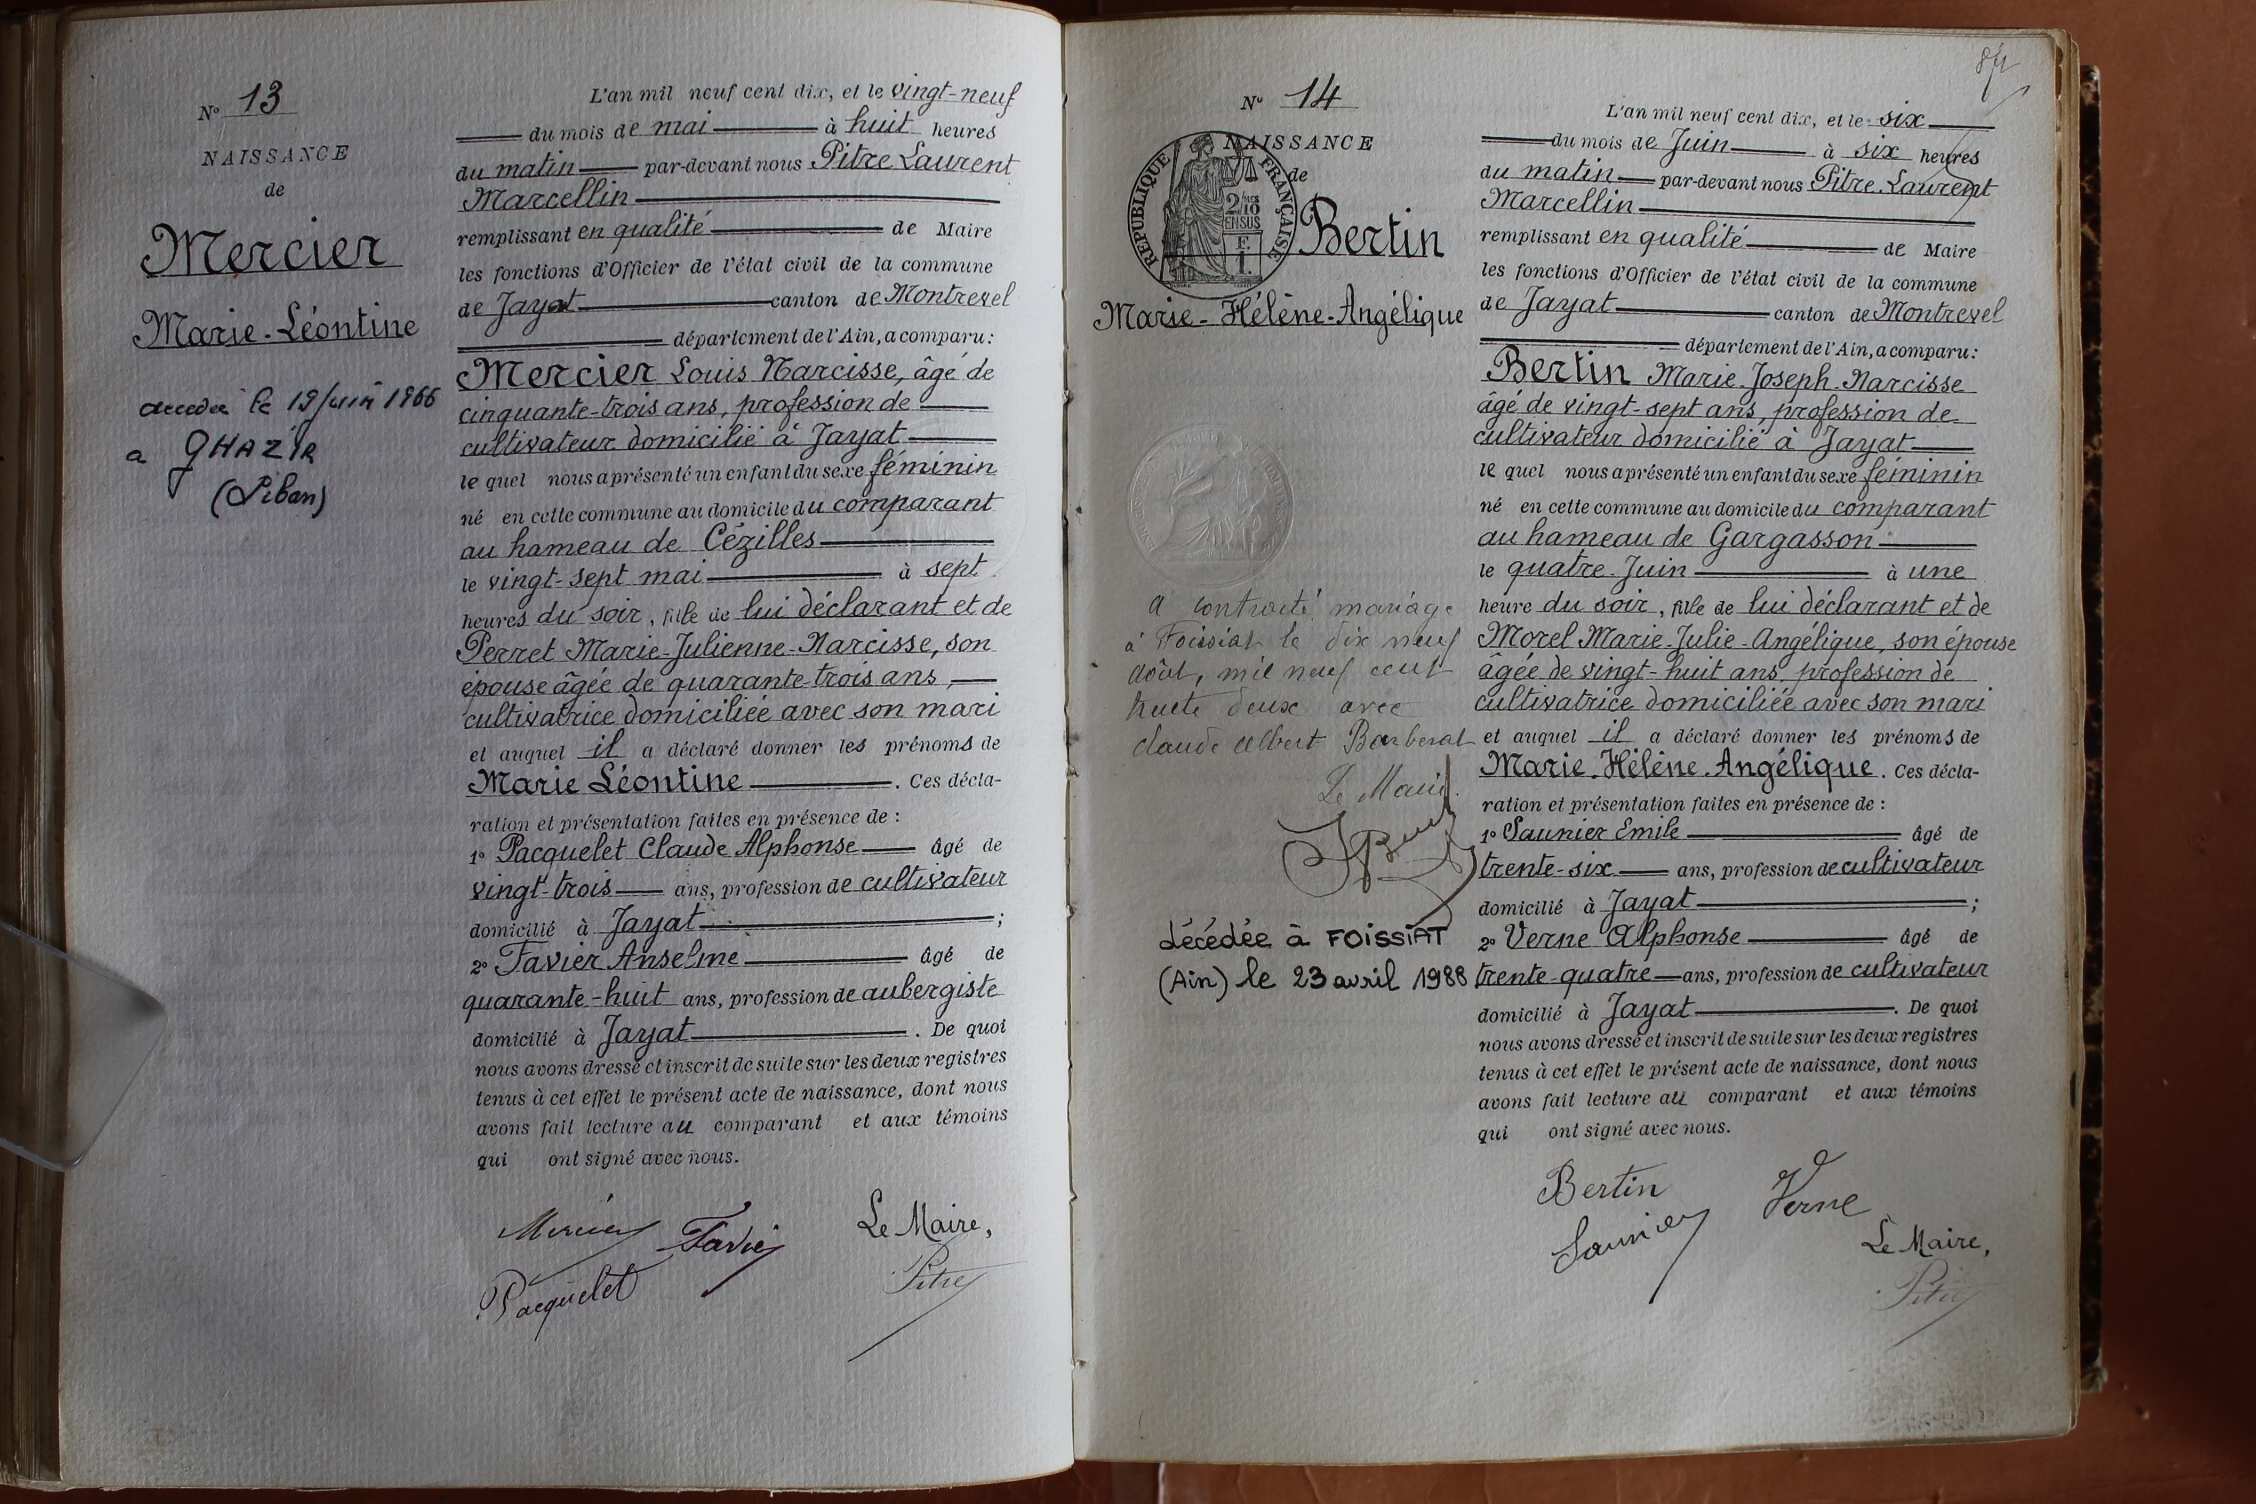 No 13
NAISSANCE
de
Mercier
Marie-Léontine
décédée le 19 juin 1966
a GHAZIR
(Liban)
L'an mil neuf cent dix, et le vingt-neuf
du mois de mai à huit heures
du matin par-devant nous Pitre Laurent
Marcellin
remplissant en qualité de Maire
les fonctions d'Officier de l'état civil de la commune
de Jayat canton de Montrevel
département de l'Ain, a comparu:
Mercier Louis Narcisse, âgé de
cinquante-trois ans, profession de
cultivateur domicilié à Jayat
lequel nous a présenté un enfant du sexe féminin
né en cette commune au domicile du comparant
au hameau de Cézilles
le vingt-sept mai à sept
heures du soir, fille de lui déclarant et de
Perret Marie-Julienne-Narcisse, son
épouse âgée de quarante-trois ans,
cultivatrice domiciliée avec son mari
et auquel il a déclaré donner les prénoms de
Marie Léontine. Ces décla-
ration et présentation faites en présence de :
1º Pacquelet Claude Alphonse âgé de
vingt-trois ans, profession de cultivateur
domicilié à Jayat ;
2º Favier Anselme âgé de
quarante-huit ans, profession de aubergiste
domicilié à Jayat. De quoi
nous avons dressé et inscrit de suite sur les deux registres
tenus à cet effet le présent acte de naissance, dont nous
avons fait lecture au comparant et aux témoins
qui ont signé avec nous.
Mercier Favier Le Maire,
Pacquelet Pitre
84
No 14
NAISSANCE
de
REPUBLIQUE FRANÇAISE
2/10
EN SUS
F.
1.
Bertin
Marie-Hélène-Angélique
a contracté mariage
à Foissiat le dix neuf
août, mil neuf cent
trente deux avec
Claude Albert Barberat
Le Maire
décédée à FOISSIAT
(Ain) le 23 avril 1988
L'an mil neuf cent dix, et le six
du mois de Juin à six heures
du matin par-devant nous Pitre Laurent
Marcellin
remplissant en qualité de Maire
les fonctions d'Officier de l'état civil de la commune
de Jayat canton de Montrevel
département de l'Ain, a comparu:
Bertin Marie-Joseph-Narcisse
âgé de vingt-sept ans, profession de
cultivateur domicilié à Jayat
lequel nous a présenté un enfant du sexe féminin
né en cette commune au domicile du comparant
au hameau de Gargasson
le quatre Juin à une
heure du soir, fille de lui déclarant et de
Morel Marie-Julie-Angélique, son épouse
âgée de vingt-huit ans, profession de
cultivatrice domiciliée avec son mari
et auquel il a déclaré donner les prénoms de
Marie-Hélène-Angélique. Ces décla-
ration et présentation faites en présence de :
1º Saunier Emile âgé de
trente-six ans, profession de cultivateur
domicilié à Jayat ;
2º Verne Alphonse âgé de
trente-quatre ans, profession de cultivateur
domicilié à Jayat. De quoi
nous avons dressé et inscrit de suite sur les deux registres
tenus à cet effet le présent acte de naissance, dont nous
avons fait lecture au comparant et aux témoins
qui ont signé avec nous.
Bertin Verne
Saunier Le Maire,
Pitre